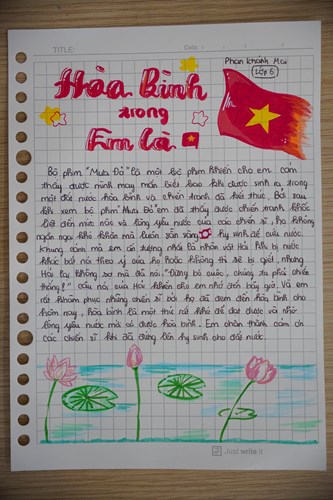 TITLE:
Date:
Phan Khánh Mai
Lớp 5
Hòa Bình
trong
Em Là
Bộ phim "Mưa Đỏ" là một bộ phim khiến cho em cảm
thấy được mình may mắn biết bao khi được sinh ra trong
một đất nước hòa bình và chiến tranh đã kết thúc. Bởi sau
khi xem bộ phim Mưa Đỏ em đã thấy được chiến tranh khốc
liệt đến mức nào và lòng yêu nước của các chiến sĩ, họ không
ngần ngại khó khăn mà luôn sẵn sàng hy sinh để cứu nước.
Khung cảnh mà em ấn tượng nhất là nhân vật Hải khi bị nước
khác bắt nói theo ý của họ hoặc không thì sẽ bị giết, nhưng
Hải lại không sợ mà đã nói: "Đừng bỏ cuộc, chúng ta phải chiến
thắng!" câu nói của Hải khiến cho em nhớ đến bây giờ. Và em
rất khâm phục những chiến sĩ bởi họ đã đem đến hòa bình cho
hôm nay, hòa bình là một thứ rất khó để đạt được và nhờ
lòng yêu nước mà có được hòa bình. Em chân thành cảm ơn
các chiến sĩ khi đã đứng lên hy sinh cho đất nước.
Just write it